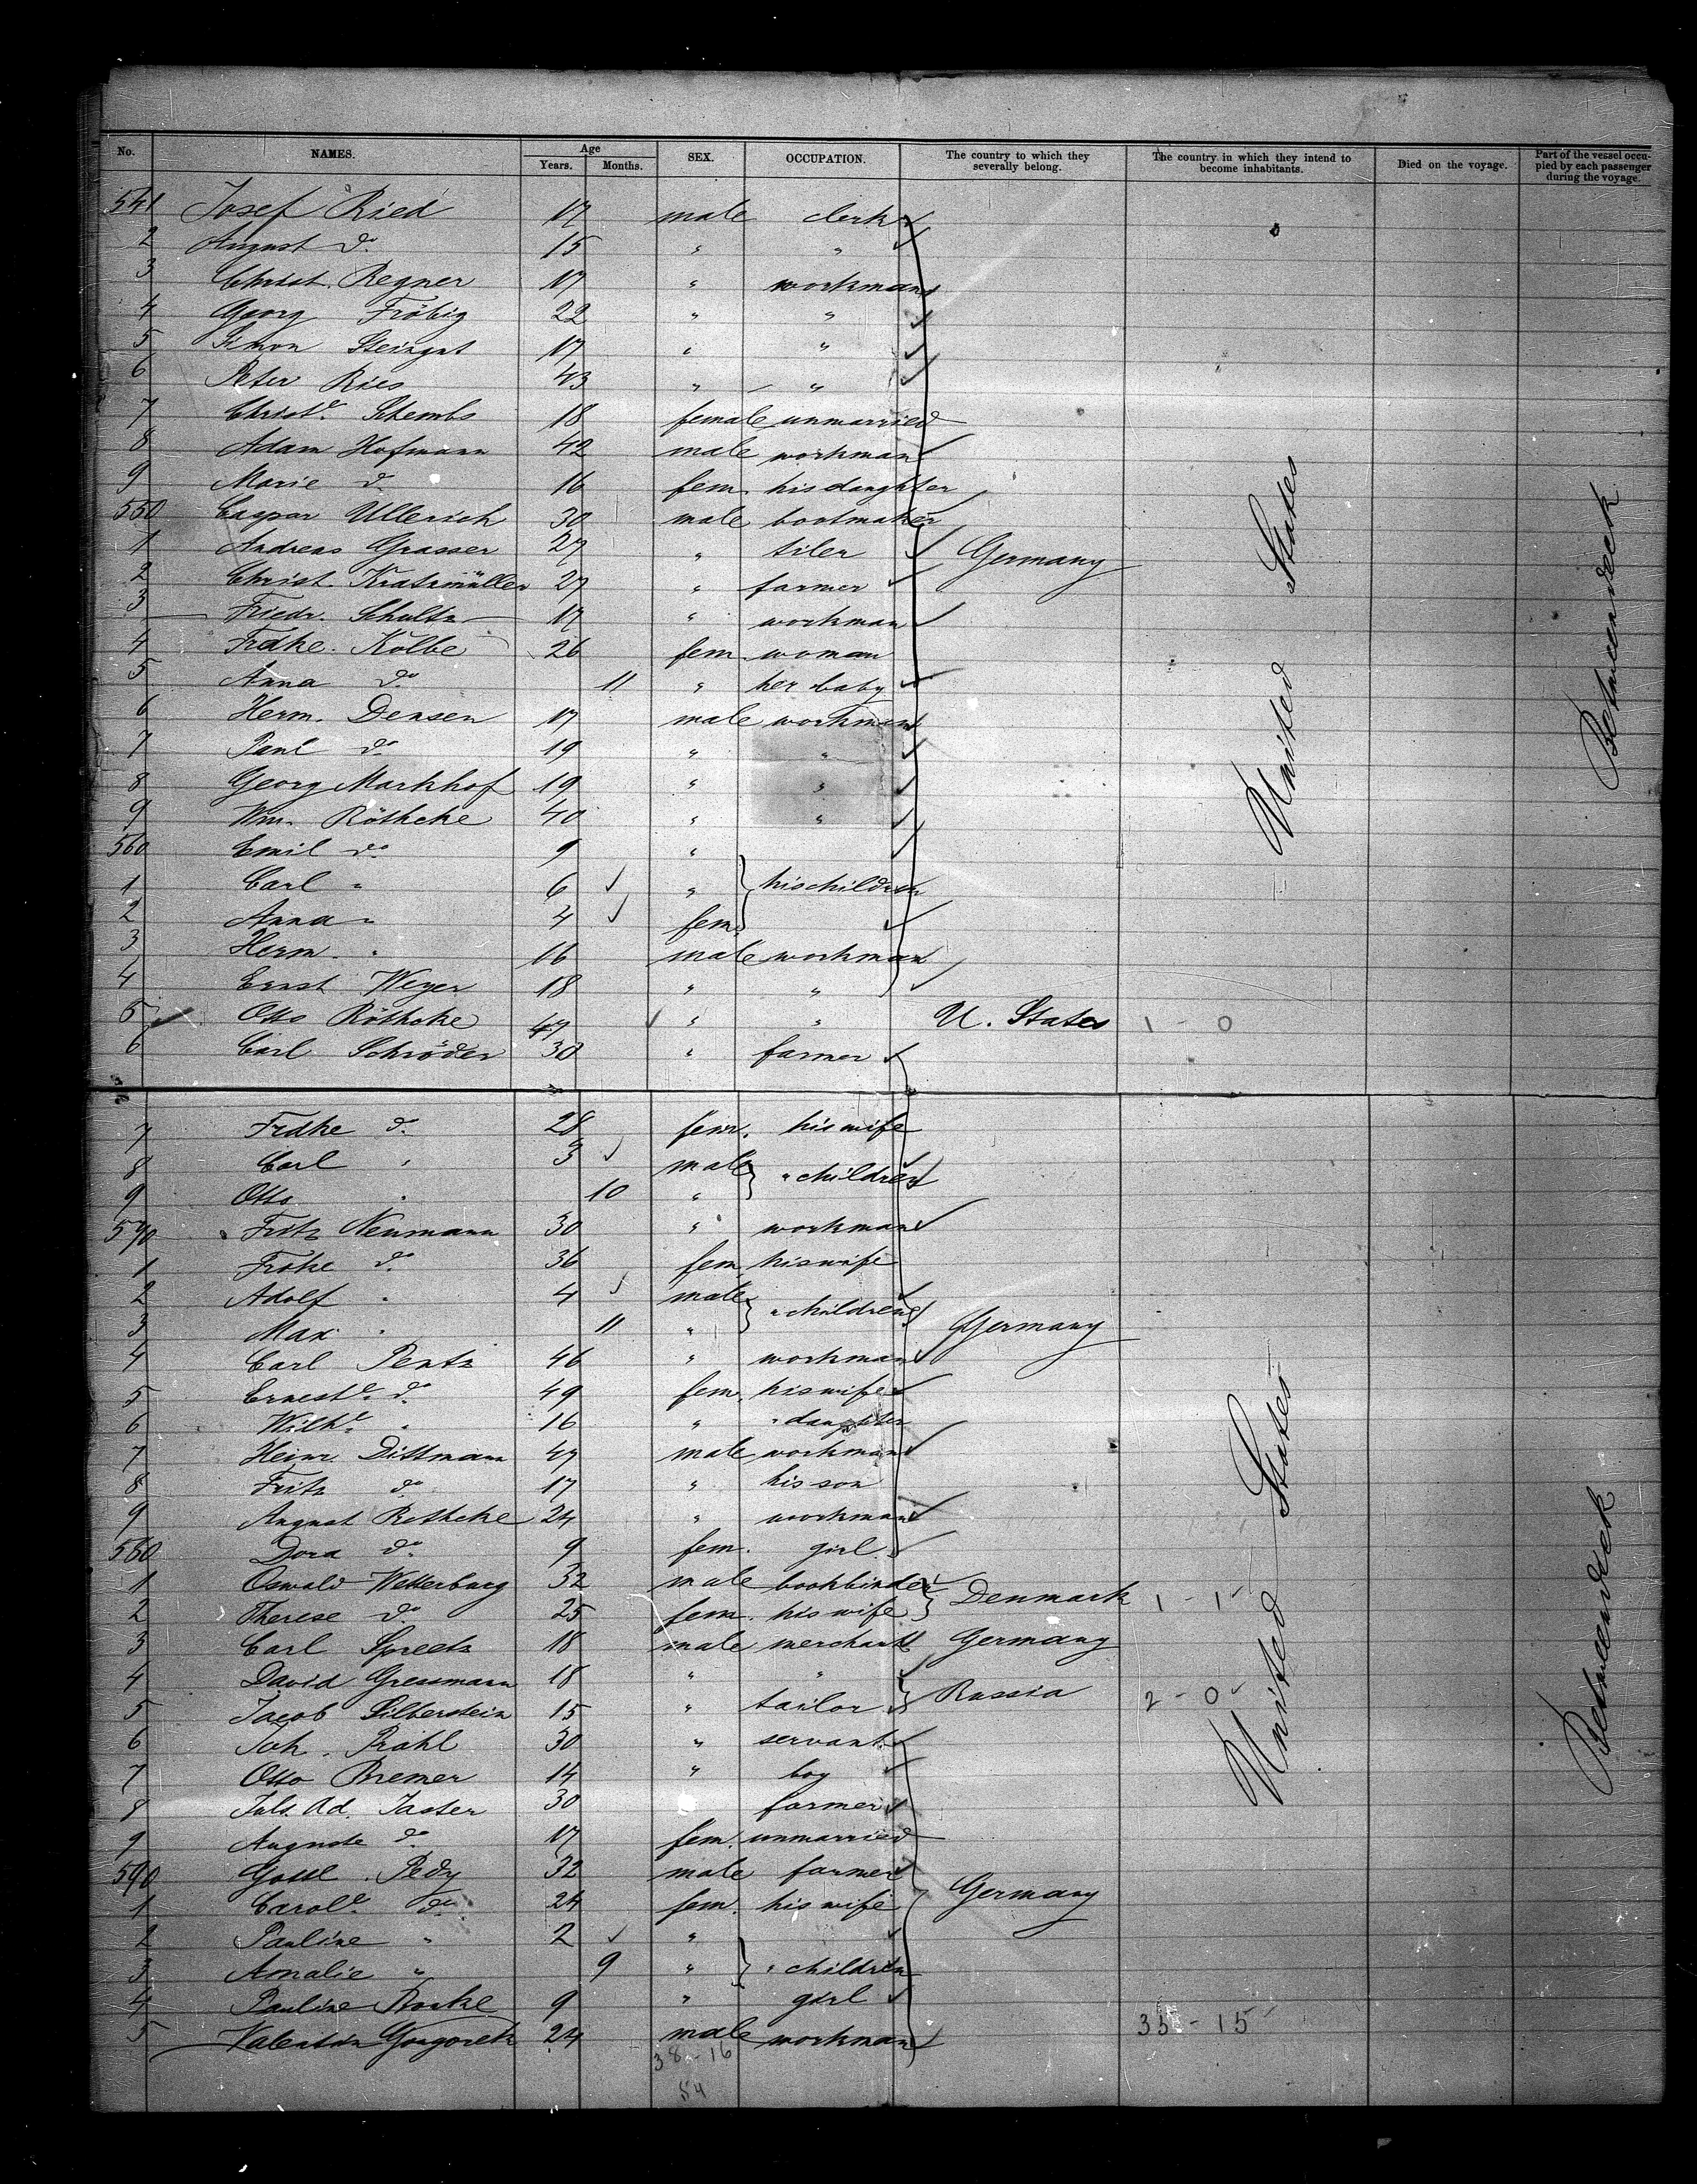 No. NAMES. Age Years. Months. SEX. OCCUPATION. The country to which they severally belong. The country in which they intend to become inhabitants. Died on the voyage. Part of the vessel occupied by each passenger during the voyage.
541 Josef Ried 17 male clerk
2 August do 15 " "
3 Christ. Regner 17 " workman
4 Georg Fröbig 22 " "
5 Simon Steingut 17 " "
6 Peter Ries 43 " "
7 Christe. Stembs 18 female unmarried
8 Adam Hofmann 42 male workman
9 Marie do 16 fem. his daughter
550 Caspar Ullerich 30 male bootmaker
1 Andreas Grasser 27 " tiler Germany
2 Christ. Kratzmüller 27 " farmer
3 Friedr. Schultz 17 " workman
4 Fredke. Kolbe 26 fem. woman
5 Anna do 11 " her baby
6 Herm. Densen 17 male workman
7 Paul do 19 " "
8 Georg Markhof 19 " "
9 Wm. Röthcke 40 " "
560 Emil do 9 "
1 Carl " 6 " his children
2 Anna " 4 fem.
3 Herm. " 16 male workman
4 Ernst Weyer 18 " "
5 Otto Röthcke 47 " " U. States 1 - 0
6 Carl Schröder 30 " farmer
United States
Between deck
7 Fredke do 28 fem. his wife
8 Carl " 3 male " children
9 Otto " 10 "
570 Fritz Neumann 30 " workman
1 Frdke do 36 fem. his wife
2 Adolf " 4 male " children
3 Max " 11 " Germany
4 Carl Pentz 46 " workman
5 Erneste. do 49 fem. his wife
6 Wilhe. " 16 " " daughter
7 Heinr. Dittmann 47 male workman
8 Fritz do 17 " his son
9 August Rothcke 24 " workman
560 Dora do 9 fem. girl
1 Oswald Wetterburg 32 male bookbinder Denmark 1 - 1
2 Therese do 25 fem. his wife
3 Carl Spreetz 18 male merchant Germany
4 David Gressmann 18 " " Russia 2 - 0
5 Jacob Silberstein 15 " tailor
6 Joh. Prahl 30 " servant
7 Otto Bremer 14 " boy
8 Juls. Ad. Jaster 30 farmer
9 Auguste do 17 fem. unmarried
590 Gottl. Pedy 32 male farmer
1 Carole. do 24 fem. his wife Germany
2 Pauline " 2 "
3 Amalie " 9 " " children
4 Pauline 9 " girl
5 Valentin 24 male workman
United States
Between deck
35 - 15
38 - 16
54